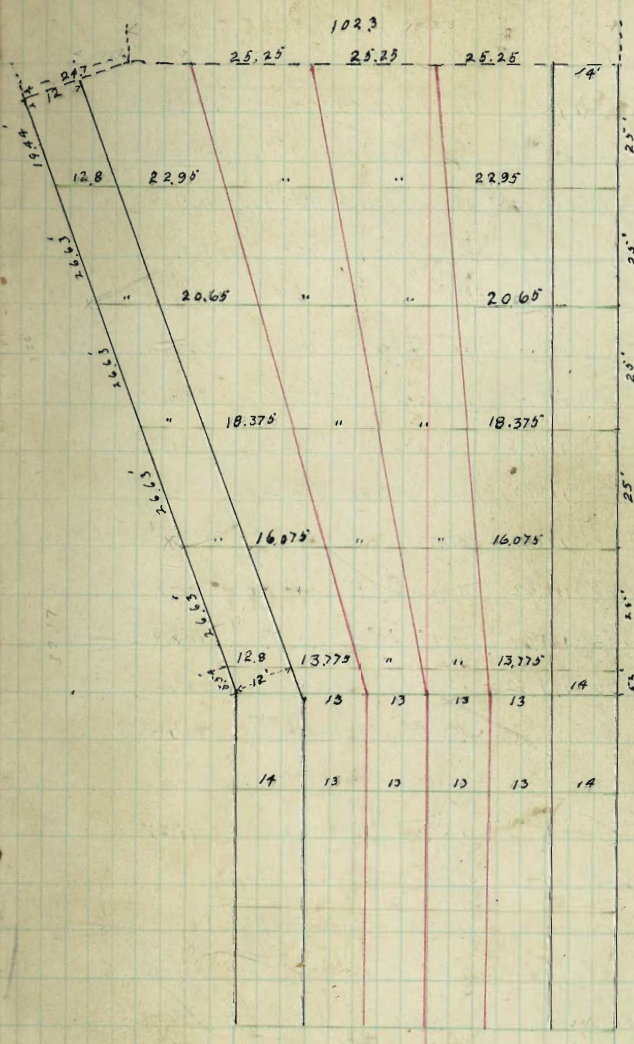 1023
25.25 25.25 25.25 14'
24.7
12
19.44'
25'
12.8 22.95 " " 22.95
26.63'
25'
" 20.65 " " 20.65
26.63'
25'
" 18.375 " " 18.375
26.63'
25'
" 16.075 " " 16.075
26.63'
25'
12.8 13.775 " " 13.775
12' 14
13 13 13 13
14 13 13 13 13 14